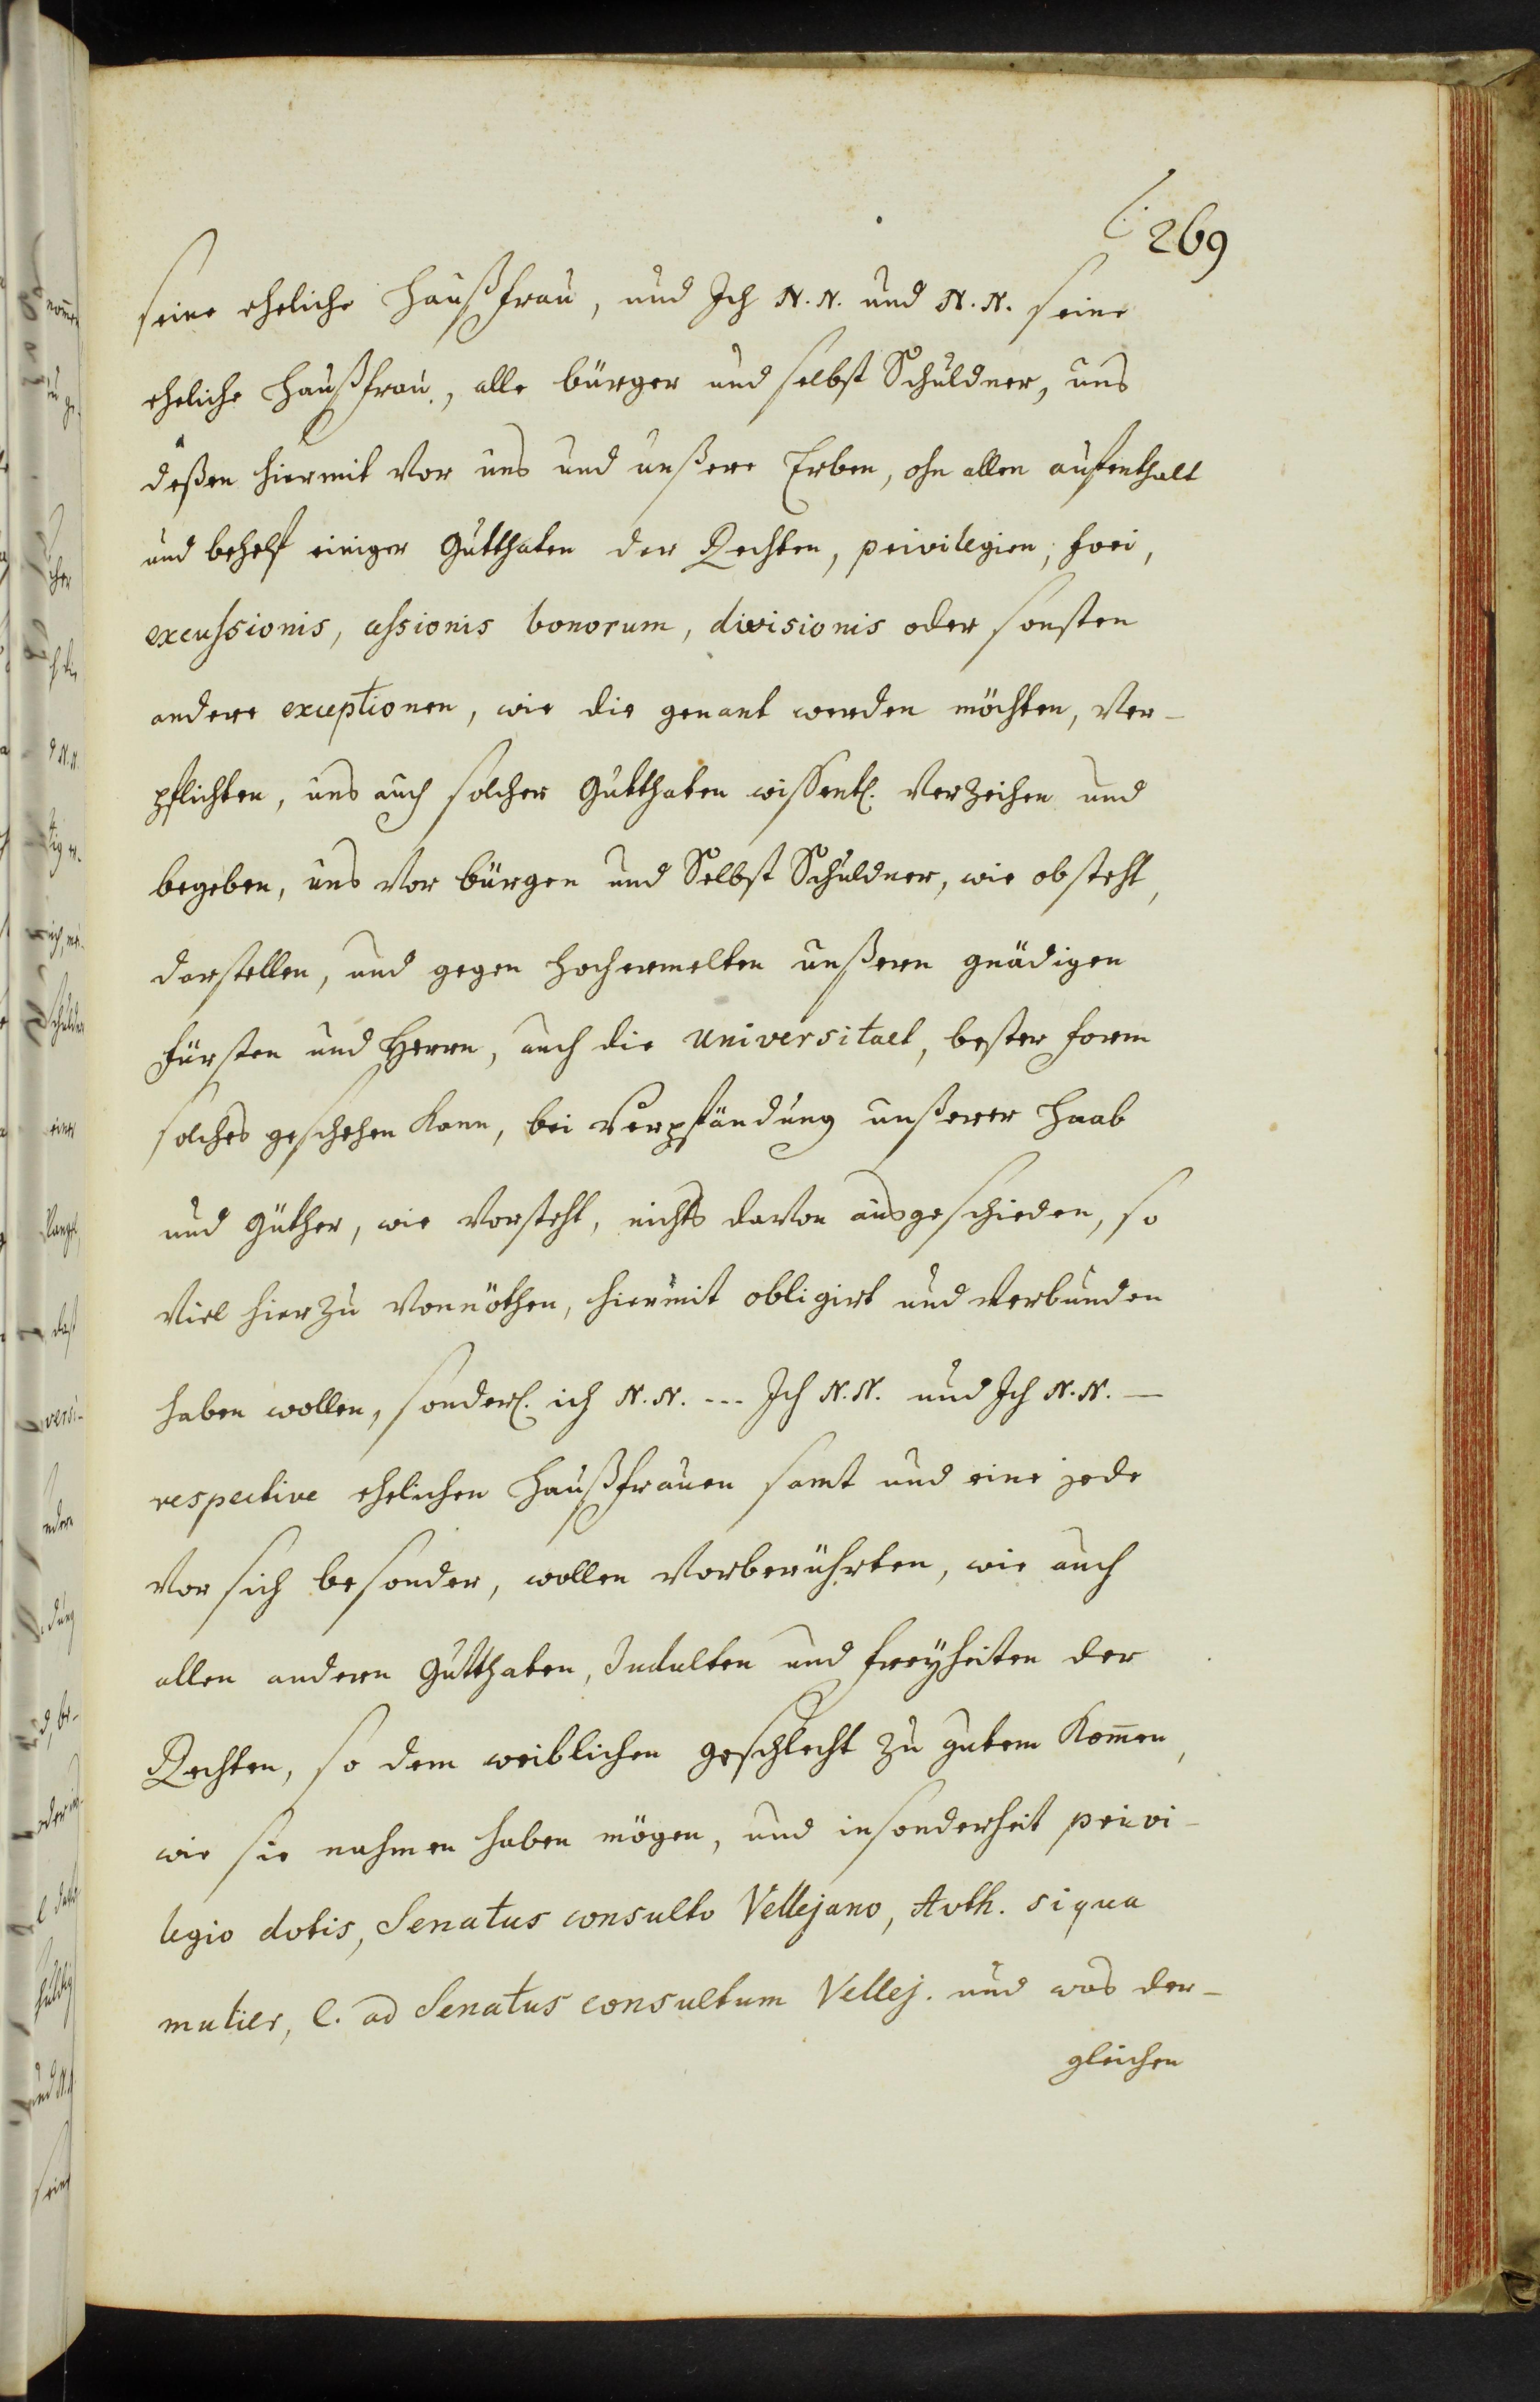 269
seine eheliche Haußfrau, und Ich N. N. und N. N. seine
eheliche Haußfrau, alle bürger und selbst Schuldner, uns
deßen hiermit vor uns und unßere Erben, ohn allen aufenthalt
und behelf einiger Gutthaten der Rechten, privilegien, fori,
excussionis, cessionis bonorum, divisionis oder sonsten
andere exceptionen, wie die genant werden möchten, ver-
pflichten, uns auch solcher Gutthaten wissentl. verzeihen und
begeben, uns vor bürgen und Selbst Schuldner, wie obsteht,
darstellen, und gegen hochermelten unßern gnädigen
fürsten und Herrn, auch die Universitaet, bester form
solches geschehen kann, bei Verpfändung unßerer Haab
und Güther, wie vorsteht, nichts davon ausgeschieden, so
viel hierzu vonnöthen, hiermit obligirt und verbunden
haben wollen, sonderl. ich N. N. --- Ich N. N. und Ich N. N. —
respective ehelichen Haußfrauen samt und eine jede
vor sich besonder, wollen vorberührten, wie auch
allen andern Gutthaten, Indulten und freyheiten der
Rechten, so dem weiblichen geschlecht zu gutem kom̄en,
wie sie nahmen haben mögen, und insonderheit privi-
legio dotis, Senatus consulto Vellejano, Auth. siqua
mulier, C. ad Senatus consultum Vellej. und was der-
gleichen